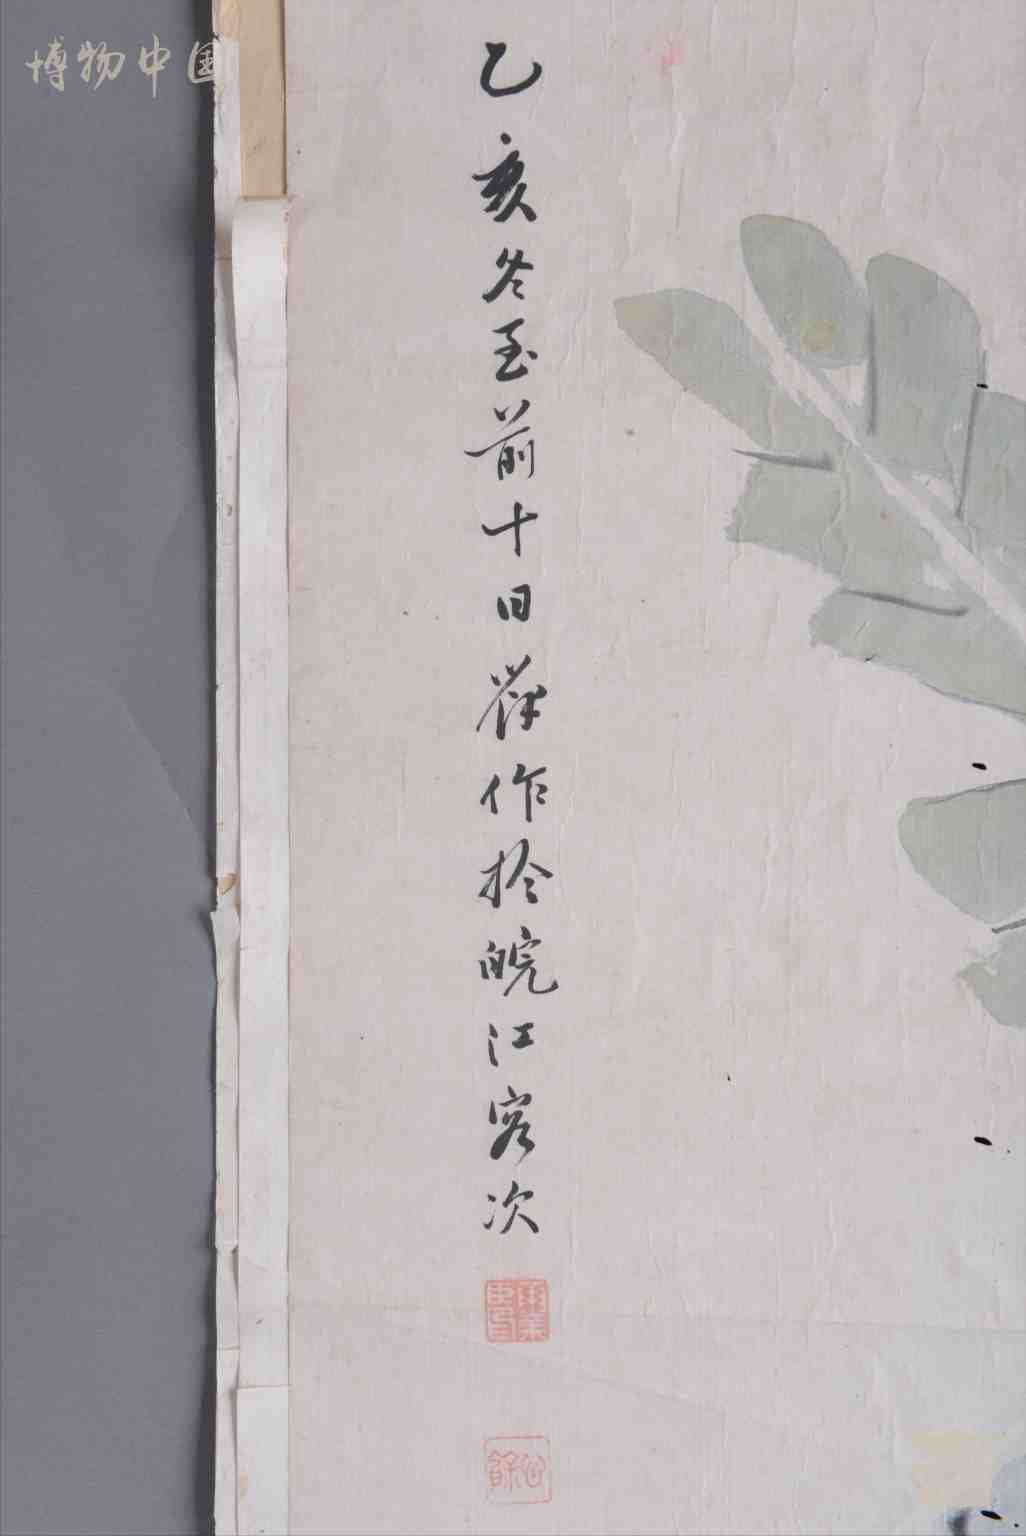 博物中国
乙亥冬至前十日荣作於皖江客次